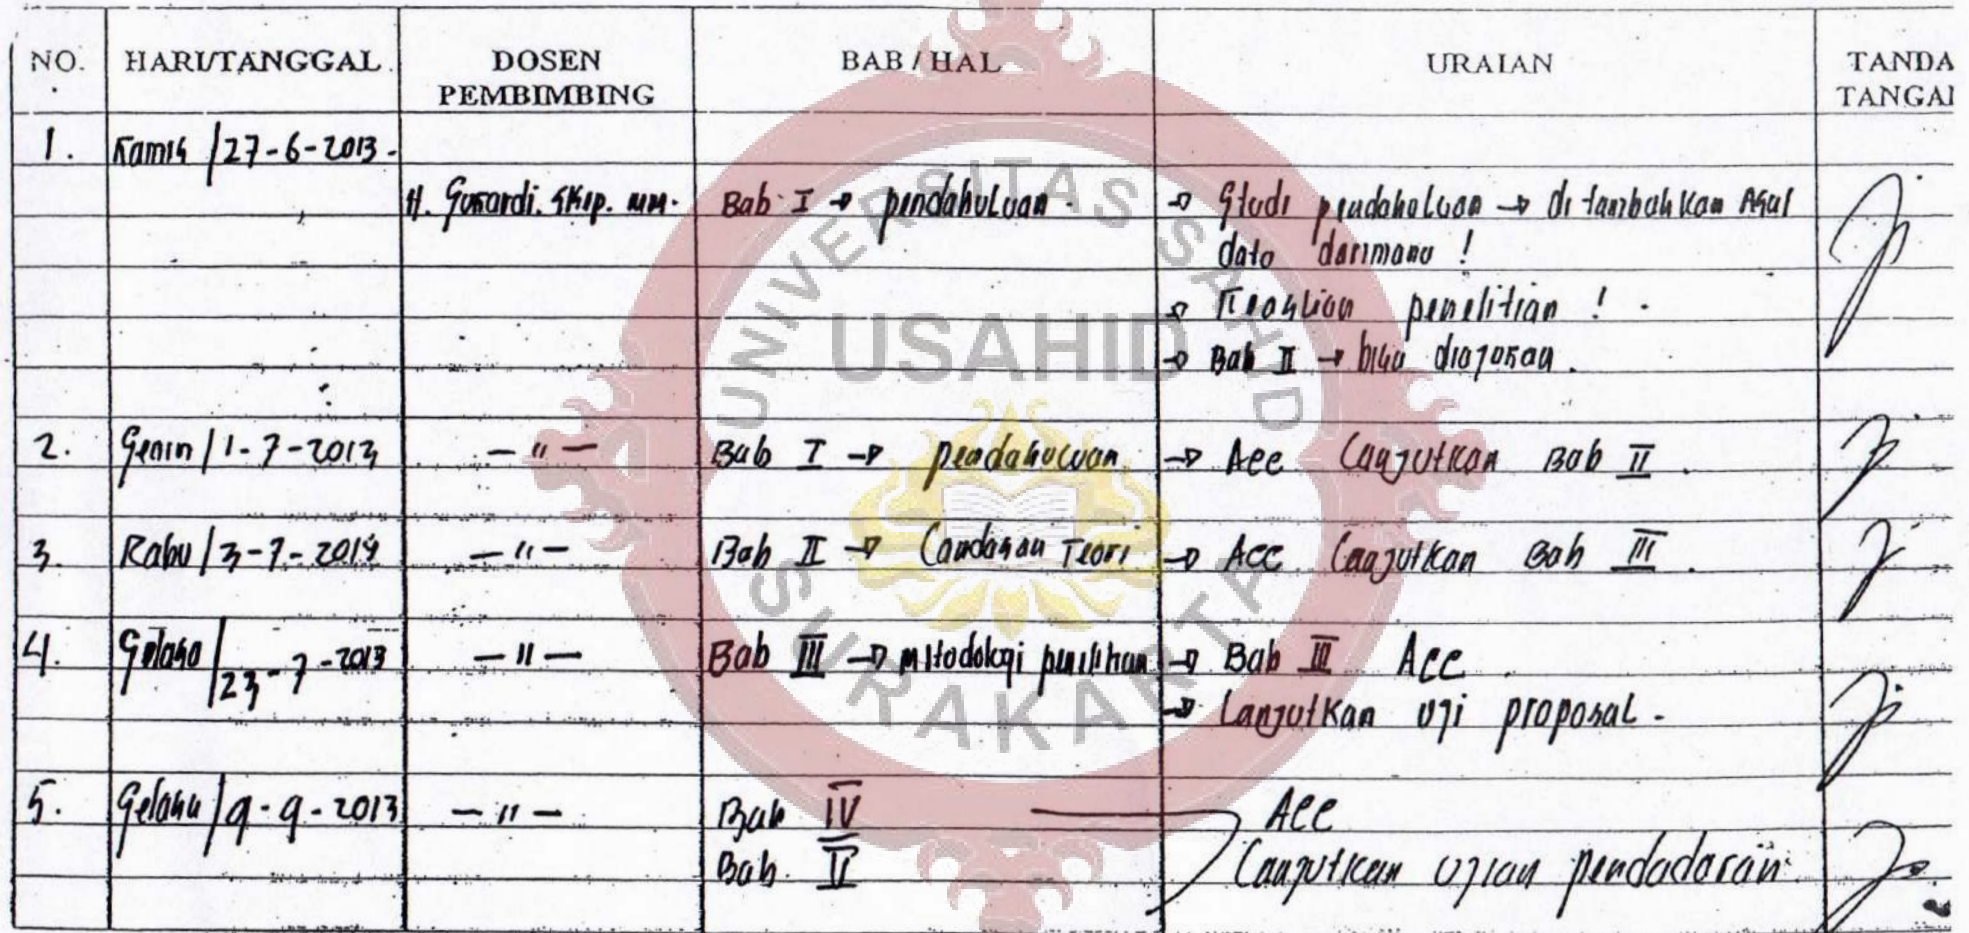 NO. HARI/TANGGAL DOSEN PEMBIMBING BAB / HAL URAIAN TANDA TANGAN
1. Kamis / 27-6-2013 -
H. Sunardi. SKep. MM. Bab I → pendahuluan - → Studi pendahuluan → ditambahkan Asal
data darimana !
→ Keaslian penelitian ! -
→ Bab II → bisa diajukan .
2. Senin / 1-7-2013 — " — Bab I → pendahuluan → Acc Lanjutkan Bab II .
3. Rabu / 3-7-2013 — " — Bab II → Landasan Teori → Acc Lanjutkan Bab III .
4. Selasa / 23-7-2013 — " — Bab III → Metodologi penelitian → Bab III Acc
→ Lanjutkan uji proposal -
5. Selasa / 9-9-2013 — " — Bab IV Acc
Bab. V Lanjutkan ujian pendadaran
UNIVERSITAS SAHID
USAHID
SURAKARTA